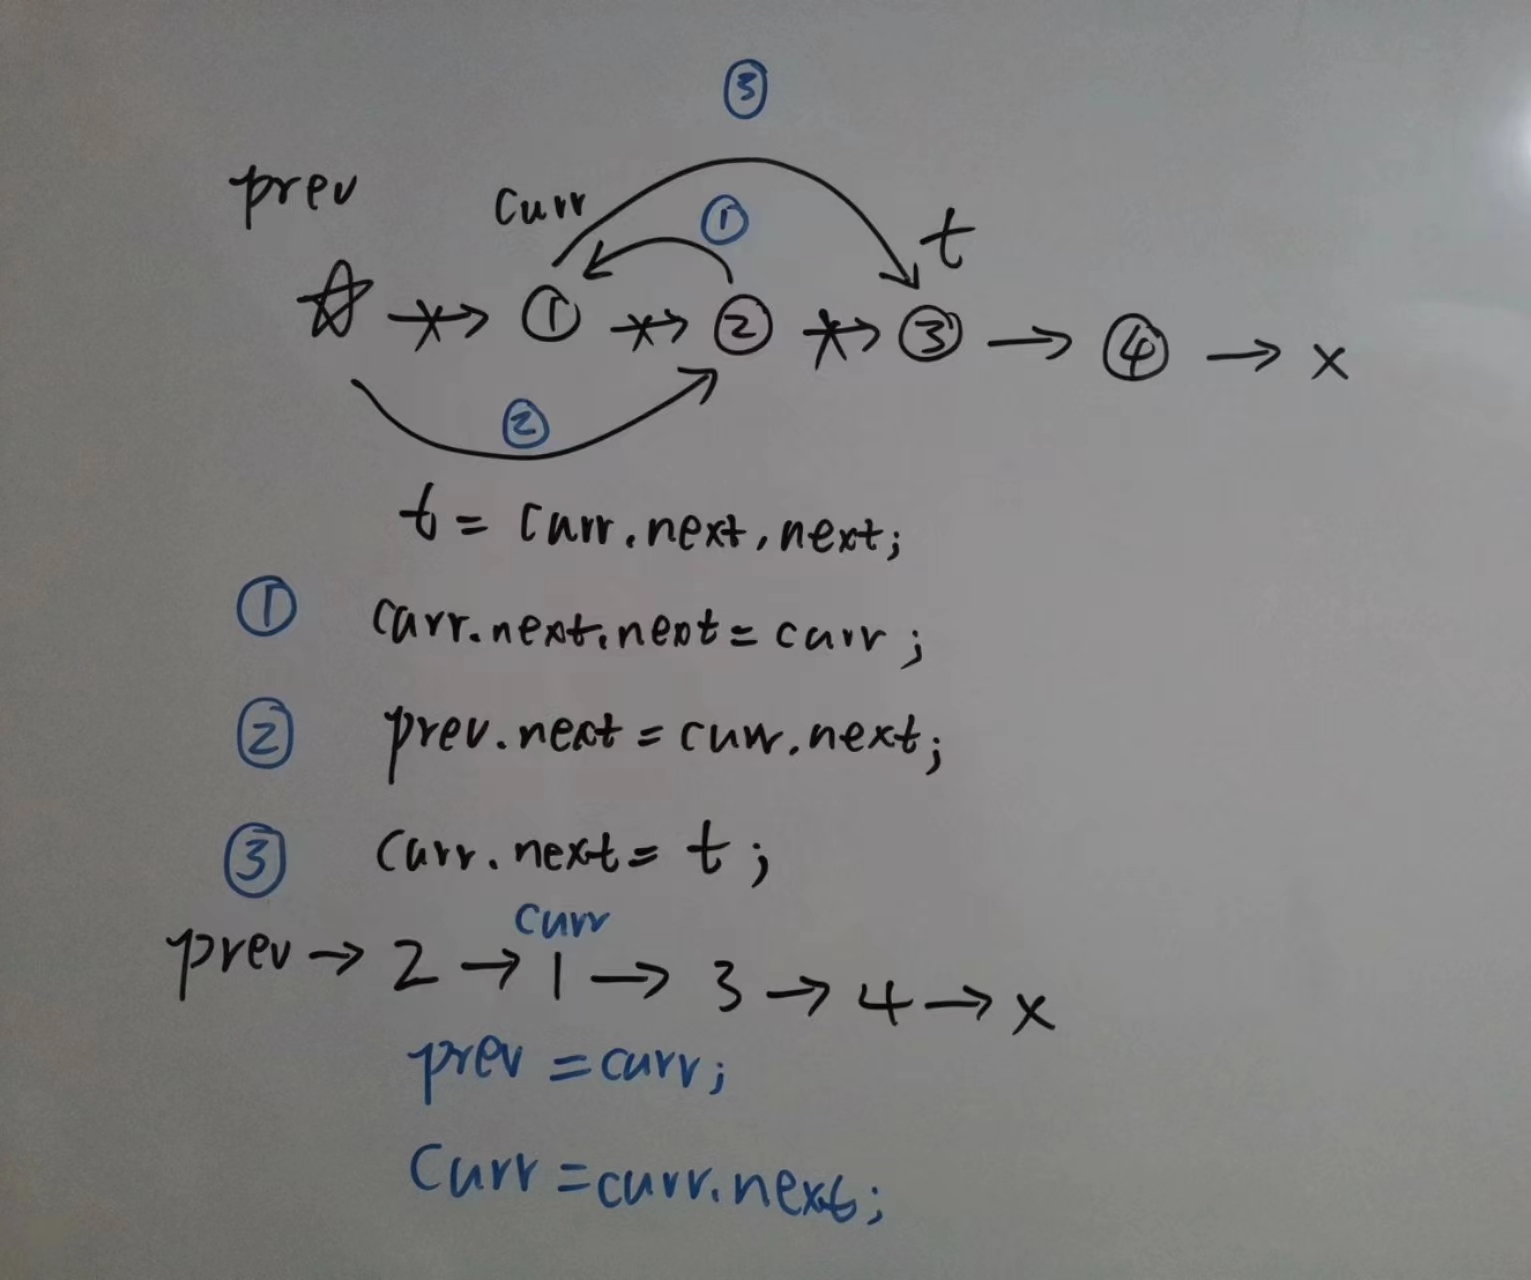 ③
prev curr ① t
☆ → ① → ② → ③ → ④ → x
②
t = curr.next.next;
① curr.next.next = curr;
② prev.next = curr.next;
③ curr.next = t;
curr
prev → 2 → 1 → 3 → 4 → x
prev = curr;
Curr = curr.next;